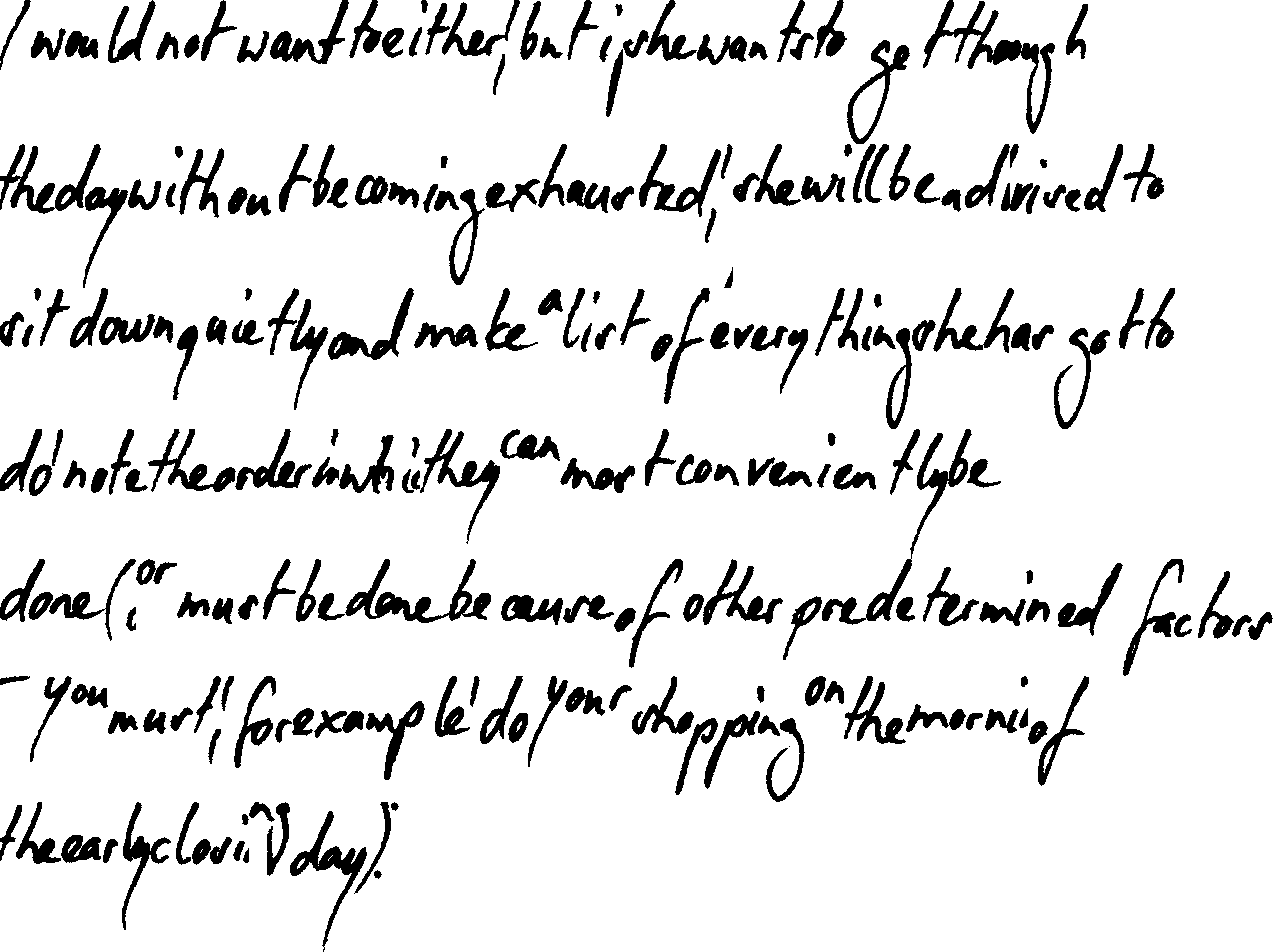 I would not want to either, but if she wants to get through
the day without becoming exhausted, she will be advised to
sit down quietly and make a list of everything she has got to
do note the order in which they can most conveniently be
done (or must be done because of other predetermined factors
- you must, for example do your shopping on the morning of
the early closing day).